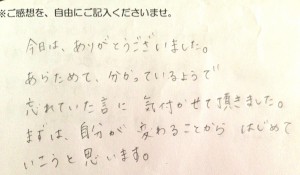 ※ご感想を、自由にご記入くださいませ。
今日は、ありがとうございました。
あらためて、分かっているようで
忘れていた言に 気付かせて頂きました。
まずは、自分が 変わることから はじめて
いこうと思います。